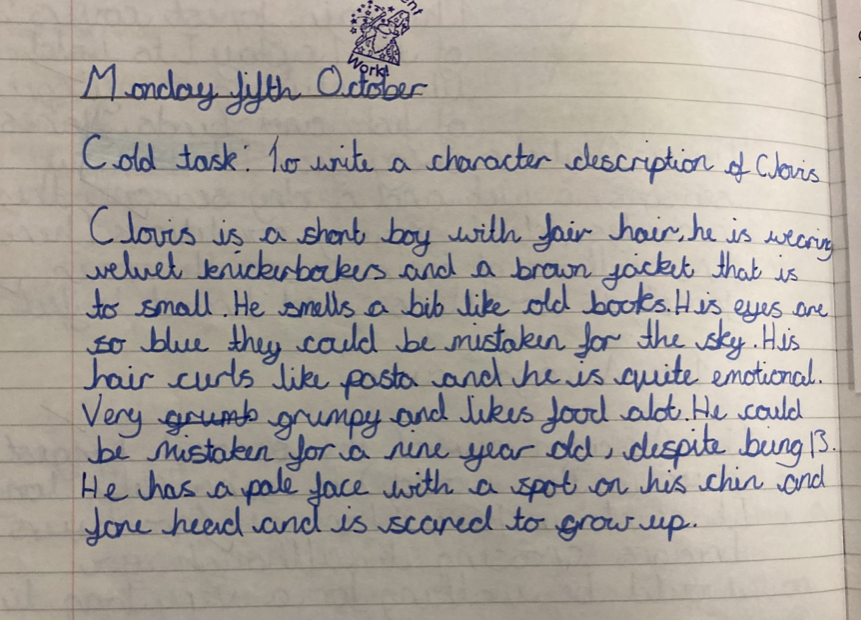 ent
Work!
Monday fifth October
Cold task: To write a character description of Clovis
Clovis is a short boy with fair hair, he is wearing
velvet knickerbockers and a brown jacket that is
to small. He smells a bib like old books. His eyes are
so blue they could be mistaken for the sky. His
hair curls like pasta and he is quite emotional.
Very grumb grumpy and likes food alot. He could
be mistaken for a nine year old, despite being 13.
He has a pale face with a spot on his chin and
fore head and is scared to grow up.